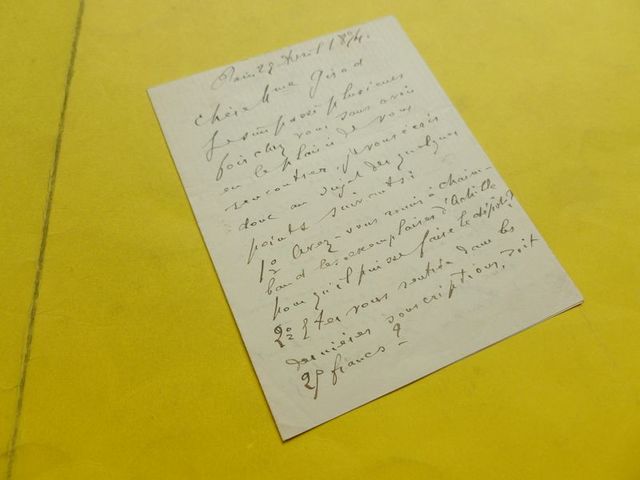 Avril 18
Chère Mme
Je suis passé plusieurs
fois chez vous sans avoir
eu le plaisir de vous
rencontrer. je vous écris
donc au sujet des quelques
points suivants:
1º Avez-vous remis à Cham-
baud les exemplaires d'Achille
pour qu'il puisse faire le dépôt?
2º Êtes vous rentrée dans les
dernières souscriptions, soit
francs ?